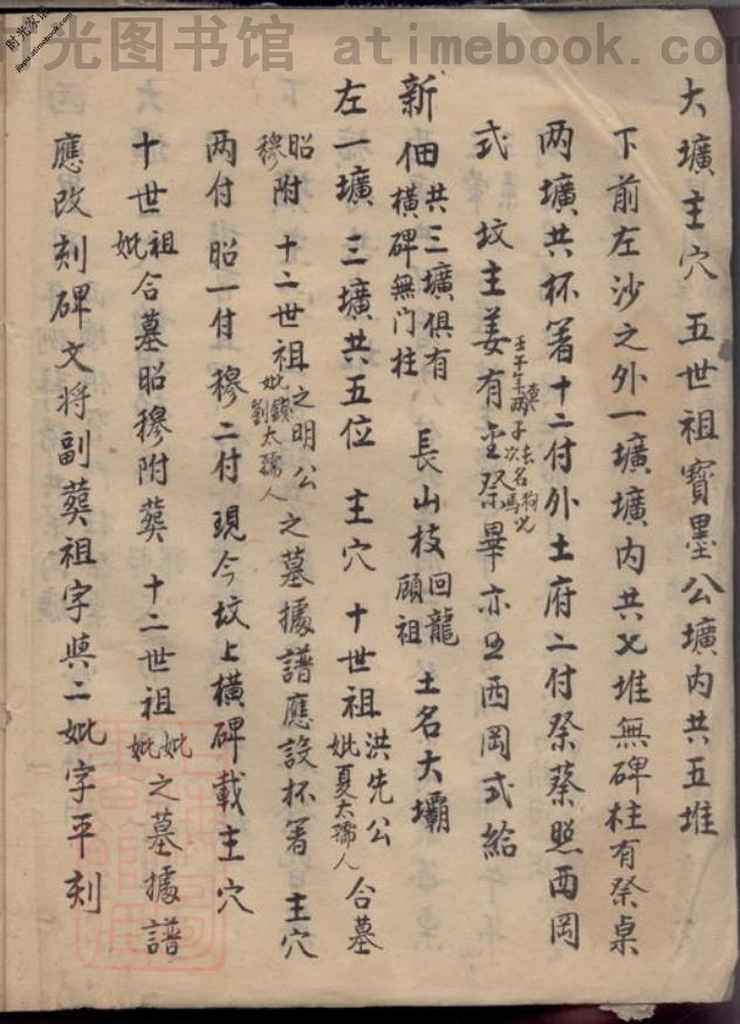 光图书馆 atimebook.com
时光家谱
jiapu.atimebook.com
大壙主穴 五世祖寶墨公壙内共五堆
下前左沙之外一壙壙内共七堆無碑柱有祭桌
两壙共杯箸十二付外土府二付祭蔡照西岡
式 坟主姜有 祭畢亦 西岡式給
新佃 共三壙俱有 橫碑無门柱 長山枝 回龍 顧祖 土名大壩
左一壙 三壙共五位 主穴 十世祖 洪先公 妣夏太孺人 合墓
昭穆附 十二世祖 之明公 妣 劉太孺人 之墓據譜應設杯箸 主穴
两付 昭一付 穆二付 現今坟上橫碑載主穴
十世 祖妣 合墓昭穆附葬 十二世祖 妣妣 之墓據譜
應改刻碑文将副葬祖字與二妣字平刻